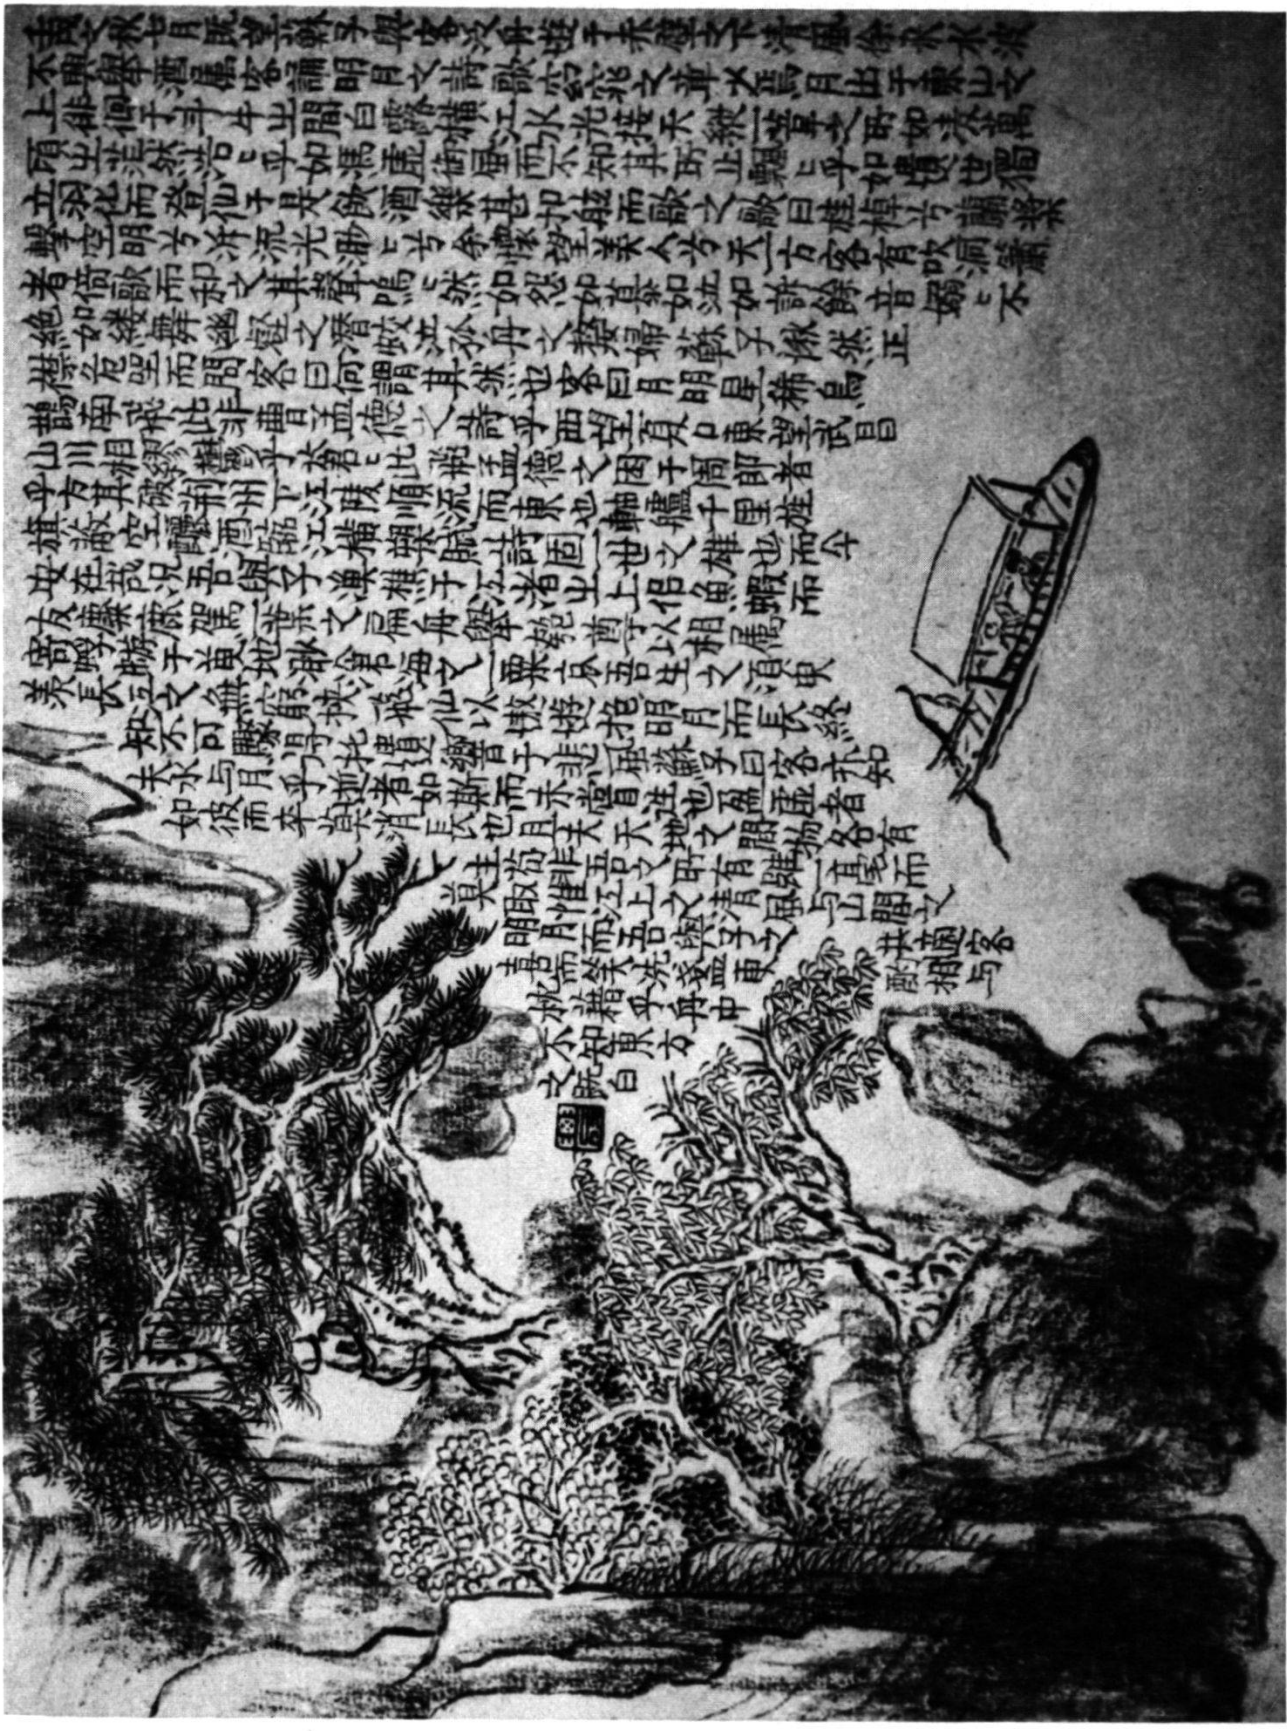 壬戌秋七月既望蘇子與客泛舟遊于赤壁之下清風徐來水波
不興舉酒屬客誦明月之詩歌窈窕之章少焉月出于東山之
上徘徊于斗牛之間白露橫江水光接天縱一葦之所如凌萬
頃之茫然浩〻乎如馮虛御風而不知其所止飄〻乎如遺世獨
立羽化而登仙于是飲酒樂甚扣舷而歌之歌曰桂棹兮蘭槳
擊空明兮泝流光渺〻兮余懷望美人兮天一方客有吹洞簫
者倚歌而和之其聲嗚〻然如怨如慕如泣如訴餘音嫋〻不
絶如縷舞幽壑之潛蛟泣孤舟之嫠婦蘇子愀然正
襟危坐而問客曰何謂其然也客曰月明星稀烏
鵲南飛此非曹孟德之詩乎西望夏口東望武昌
山川相繆鬱乎蒼〻此非孟德之困于周郎者
乎方其破荊州下江陵順流而東也舳艫千里旌
旗蔽空釃酒臨江橫槊賦詩固一世之雄也而今
安在哉況吾與子漁樵于江渚之上侶魚蝦而
友麋鹿駕一葉之扁舟舉匏尊以相屬
寄蜉蝣于天地渺滄海之一粟哀吾生之須臾
羨長江之無窮挾飛仙以遨遊抱明月而長終
知不可乎驟得託遺響于悲風蘇子曰客亦知
夫水与月乎逝者如斯而未嘗往也盈虛者
如彼而卒莫消長也且夫天地之間物各有
主苟非吾之所有雖一毫而
莫取惟江上之清風与山間之
明月而吾與子之共適客
喜而笑洗盞更酌相与
枕藉乎舟中
不知東方
之既白